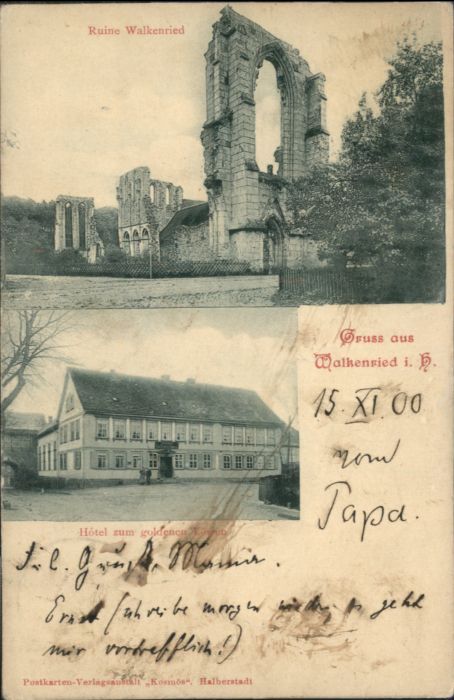 Ruine Walkenried
Gruss aus
Walkenried i. H.
15. XI. 00
vom
Papa.
Hôtel zum goldenen Löwen
Gruß, Mama.
Ernst (schreibe morgen wieder, es geht
mir vortrefflich!)
Postkarten-Verlagsanstalt „Kosmos", Halberstadt